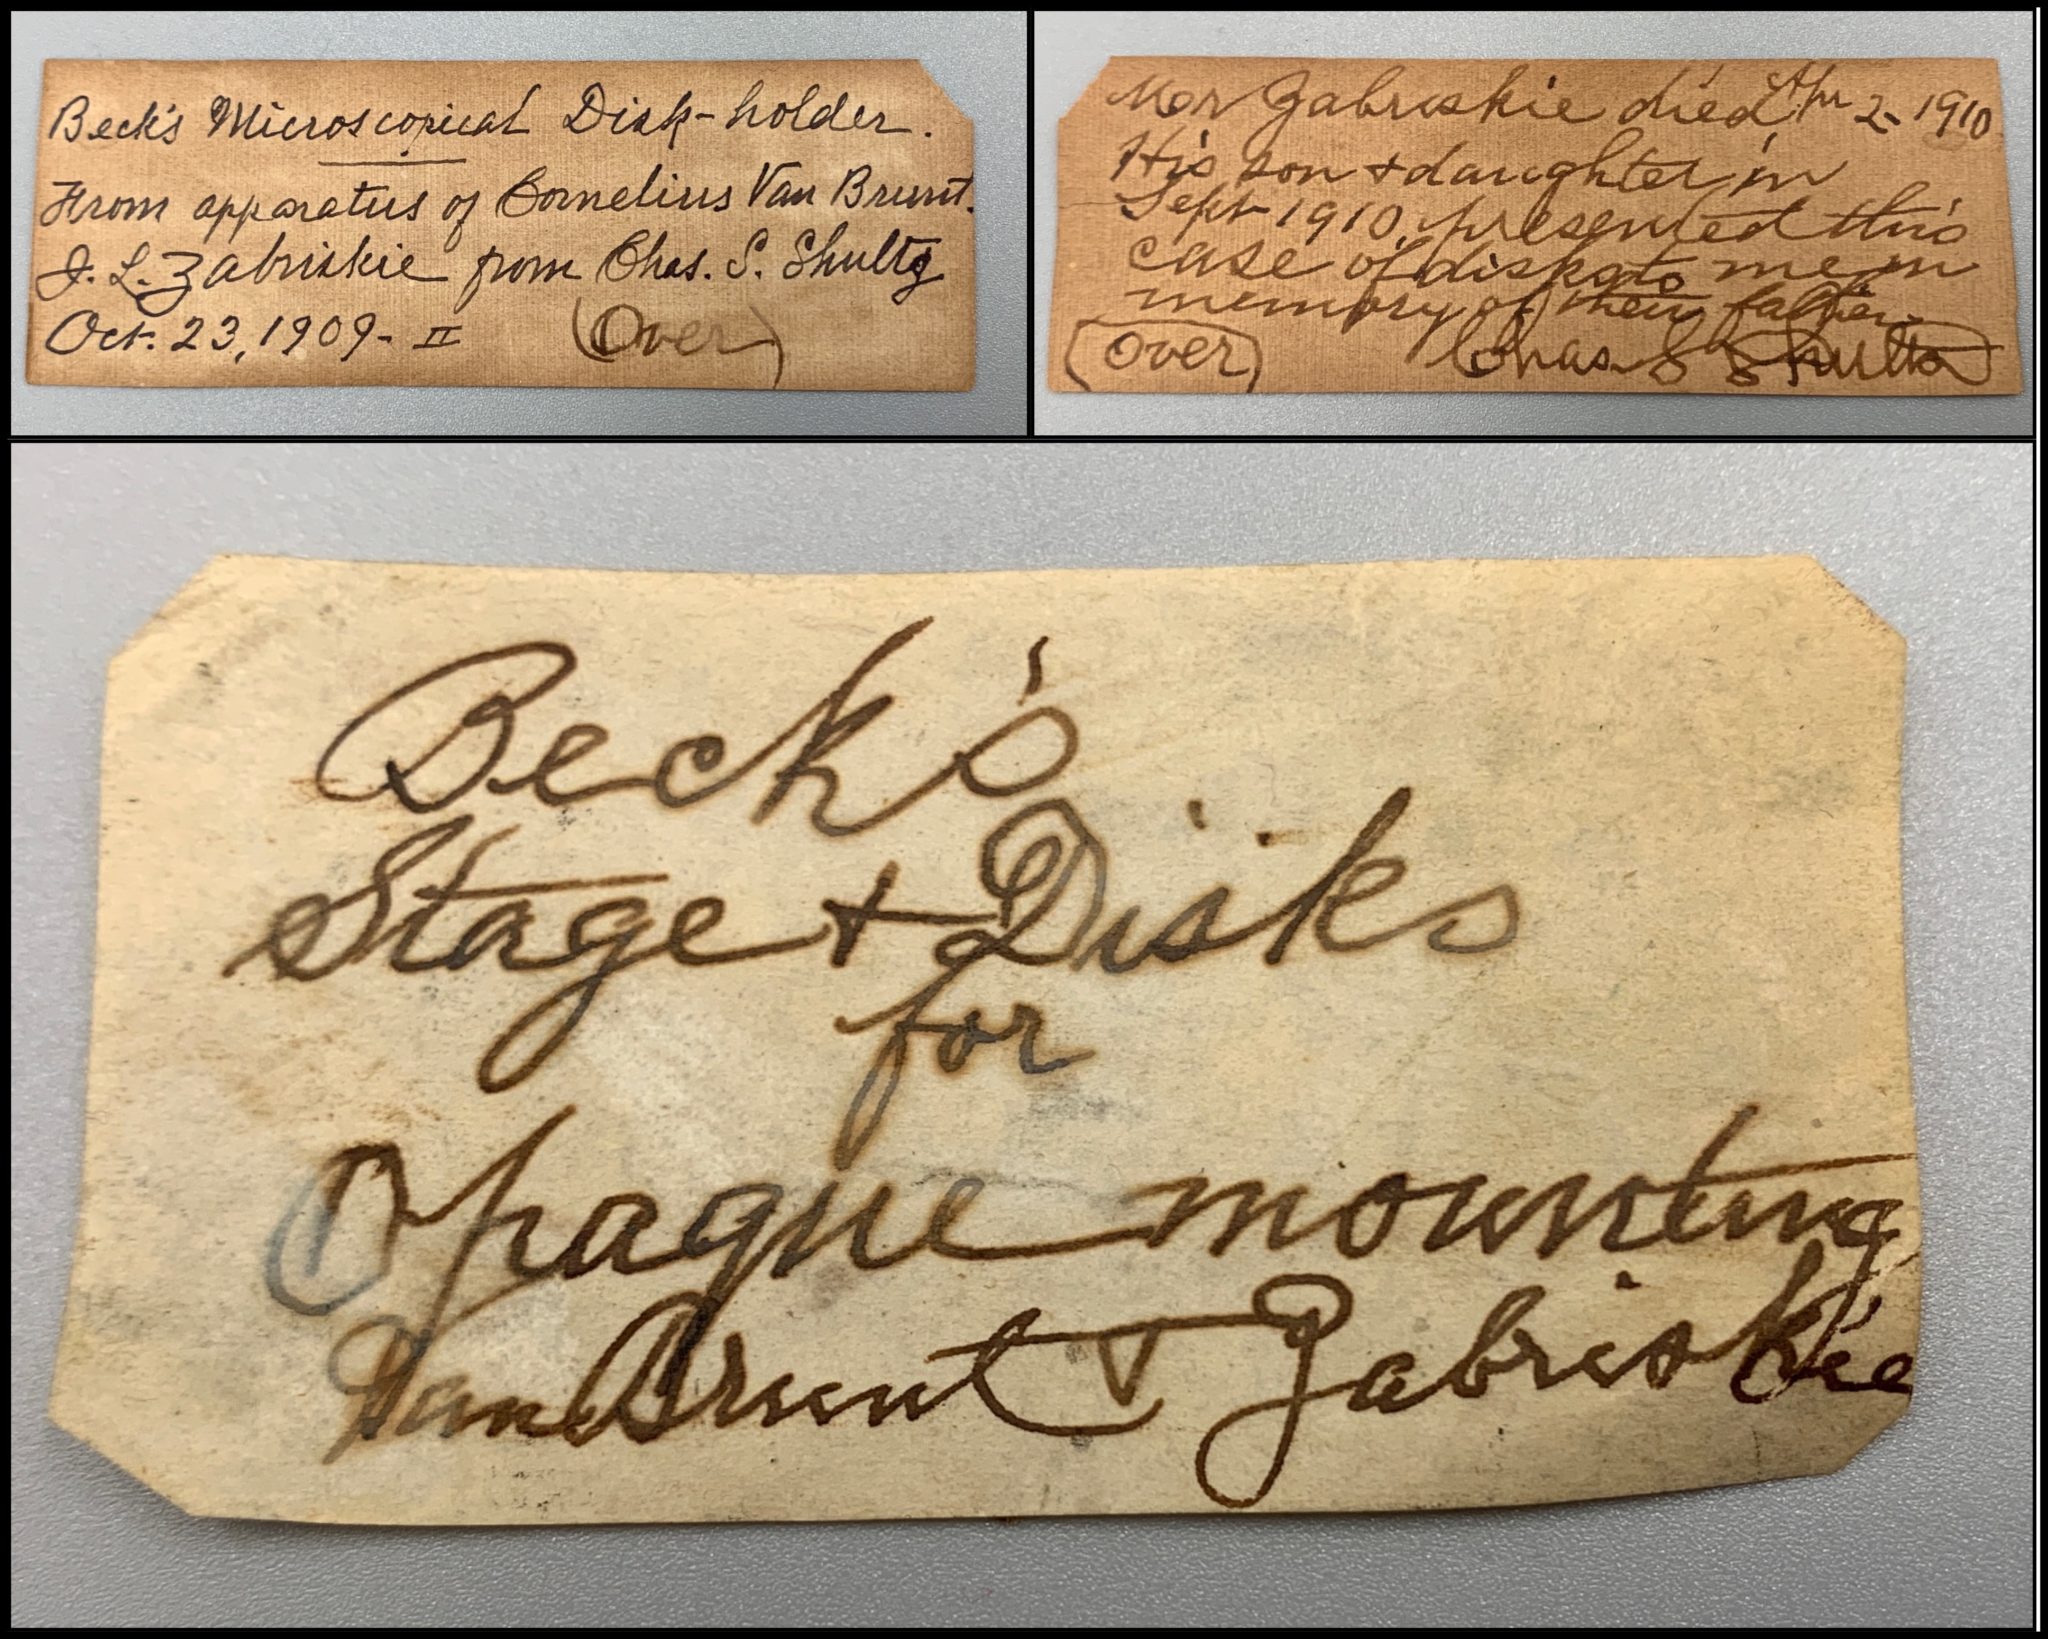 Beck's Microscopical Disk-holder.
From apparatus of Cornelius Van Brunt.
J. L. Zabriskie from Chas. S. Shultz
Oct. 23, 1909- II (Over)
Mr Zabriskie died Apr 2-1910
His son + daughter in
Sept 1910 presented this
case of disks to me in
memory of their father.
(Over) Chas S Shultz
Beck's
Stage + Disks
for
Opaque mounting
Van Brunt Zabriskie